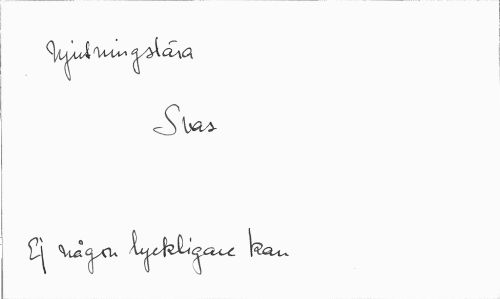 Njutningslära
Svas
Ej någon lyckligare kan